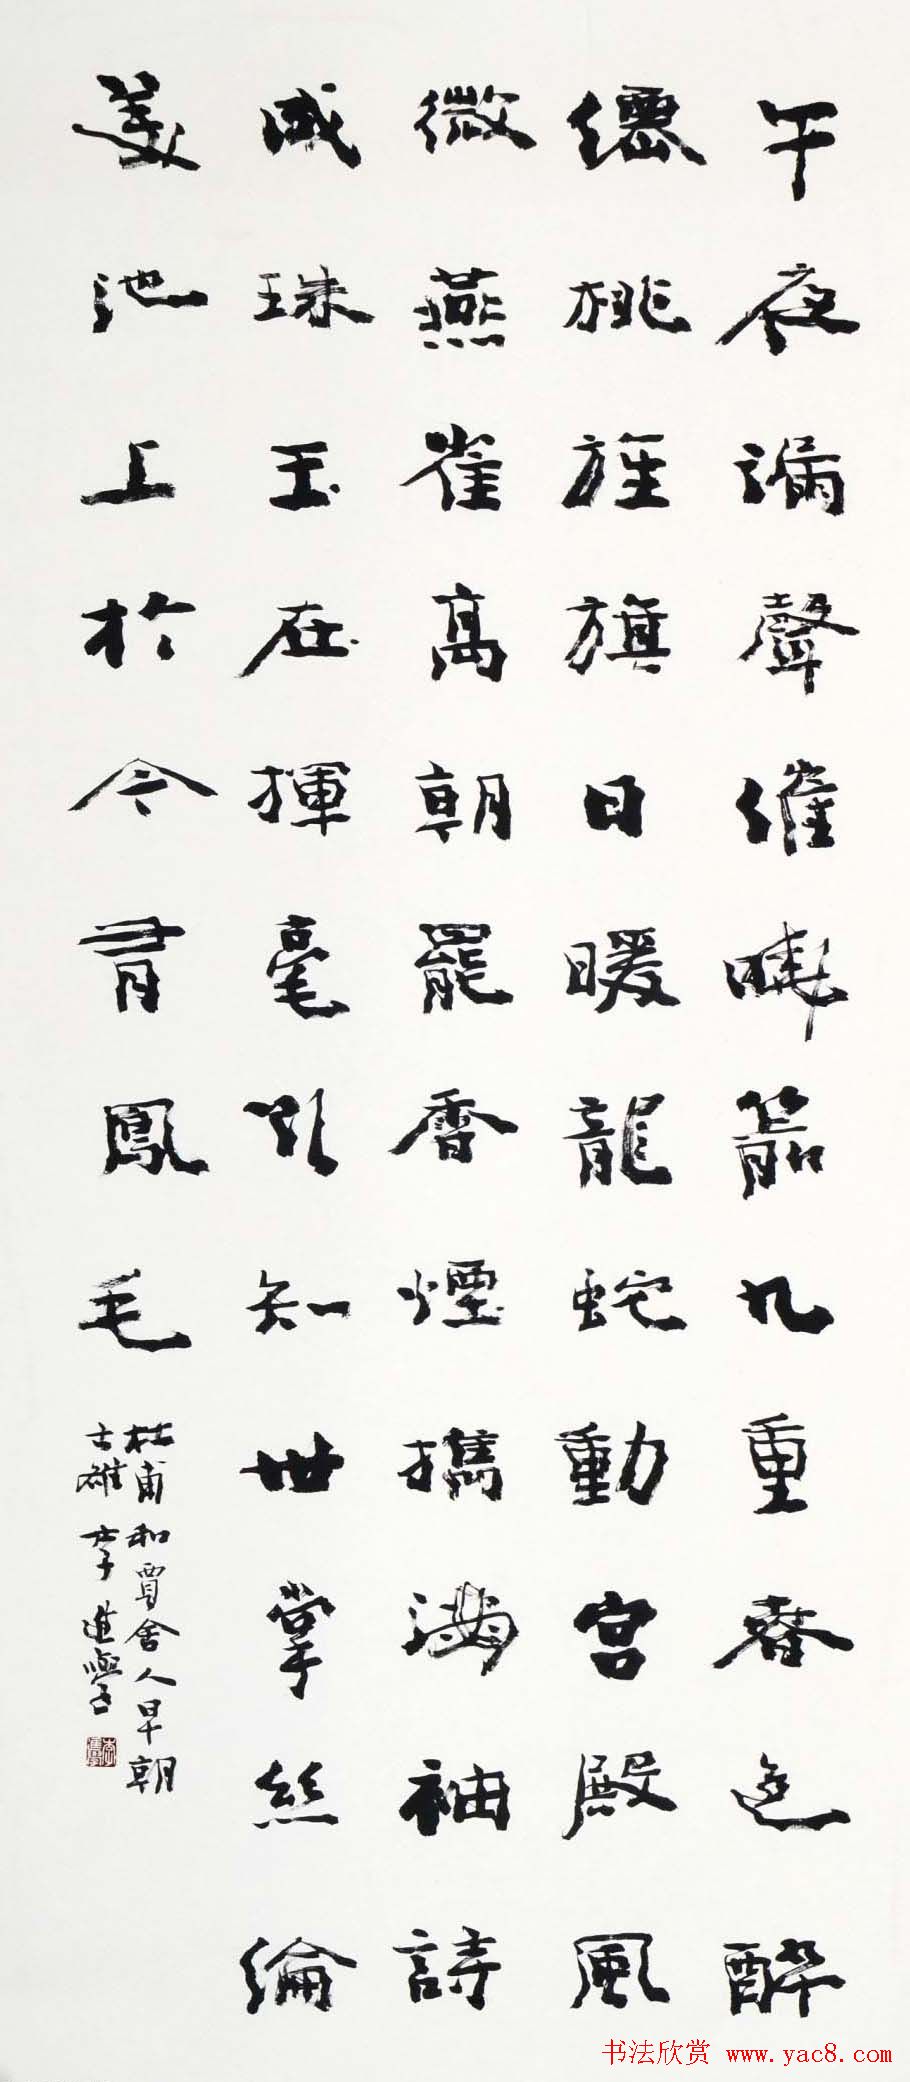 午夜漏聲催曉箭九重春色醉
僊桃旌旗日暖龍蛇動宮殿風
微燕雀高朝罷香煙攜滿袖詩
成珠玉在揮毫欲知世掌絲綸
美池上於今有鳳毛
杜甫和賈舍人早朝
古雄李進學
书法欣赏 www.yac8.com